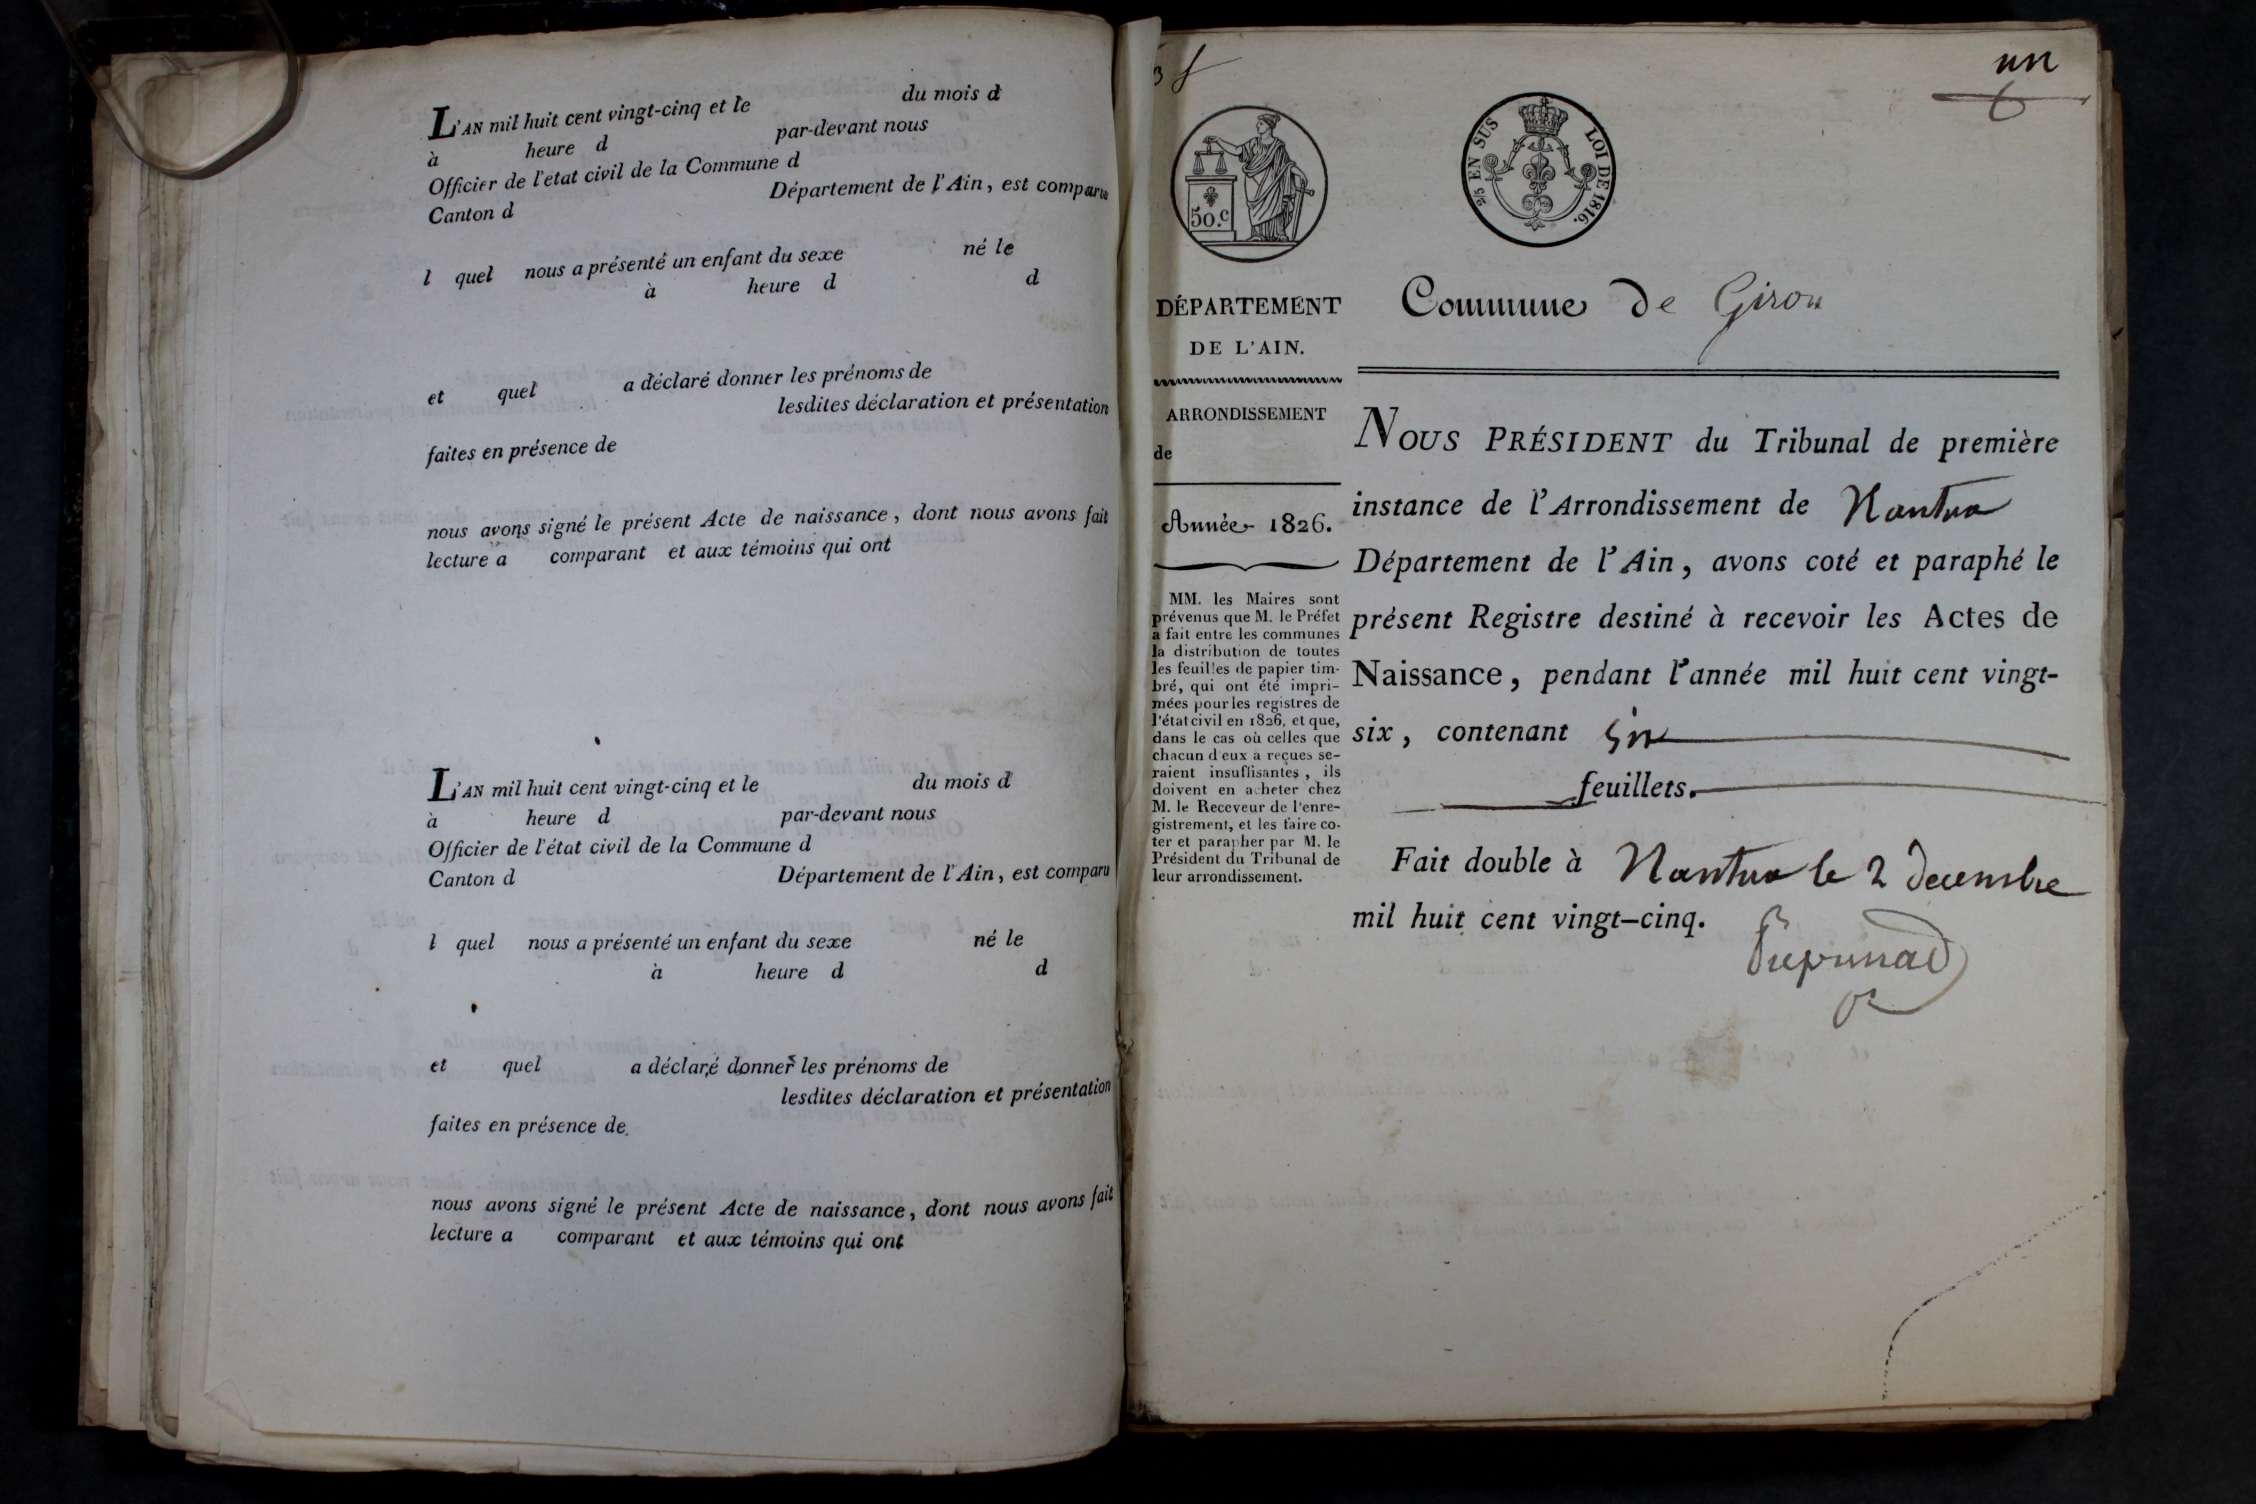 L'AN mil huit cent vingt-cinq et le du mois d
à heure d par-devant nous
Officier de l'etat civil de la Commune d
Canton d Département de l'Ain, est comparu
l quel nous a présenté un enfant du sexe né le
à heure d d
et quel a déclaré donner les prénoms de
lesdites déclaration et présentation
faites en présence de
nous avons signé le présent Acte de naissance, dont nous avons fait
lecture a comparant et aux témoins qui ont
L'AN mil huit cent vingt-cinq et le du mois d
à heure d par-devant nous
Officier de l'état civil de la Commune d
Canton d Département de l'Ain, est comparu
l quel nous a présenté un enfant du sexe né le
à heure d d
et quel a déclaré donner les prénoms de
lesdites déclaration et présentation
faites en présence de
nous avons signé le présent Acte de naissance, dont nous avons fait
lecture a comparant et aux témoins qui ont
un
50.c
25 EN SUS LOI DE 1816.
DÉPARTEMENT
DE L'AIN.
ARRONDISSEMENT
de
Année 1826.
MM. les Maires sont
prévenus que M. le Préfet
a fait entre les communes
la distribution de toutes
les feuilles de papier tim-
bré, qui ont été impri-
mées pour les registres de
l'état civil en 1826, et que,
dans le cas où celles que
chacun d'eux a reçues se-
raient insuffisantes, ils
doivent en acheter chez
M. le Receveur de l'enre-
gistrement, et les faire co-
ter et parapher par M. le
Président du Tribunal de
leur arrondissement.
Commune de Giron
NOUS PRÉSIDENT du Tribunal de première
instance de l'Arrondissement de Nantua
Département de l'Ain, avons coté et paraphé le
présent Registre destiné à recevoir les Actes de
Naissance, pendant l'année mil huit cent vingt-
six, contenant six
feuillets.
Fait double à Nantua le 2 decembre
mil huit cent vingt-cinq.